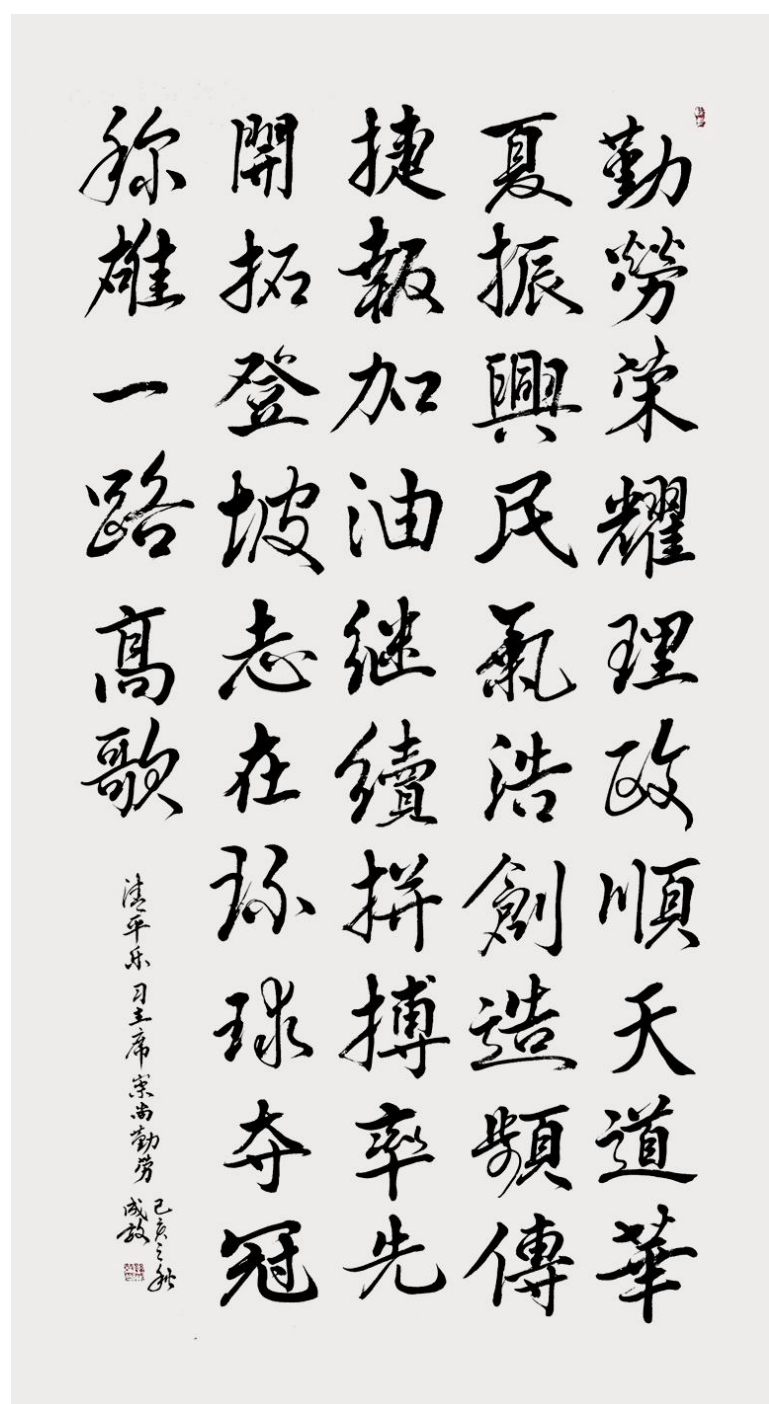 勤勞荣耀理政順天道華
夏振興民氣浩創造頻傳
捷報加油继續拼搏率先
開拓登坡志在环球夺冠
称雄一路高歌
清平乐习主席崇尚勤劳
己亥之秋
成放